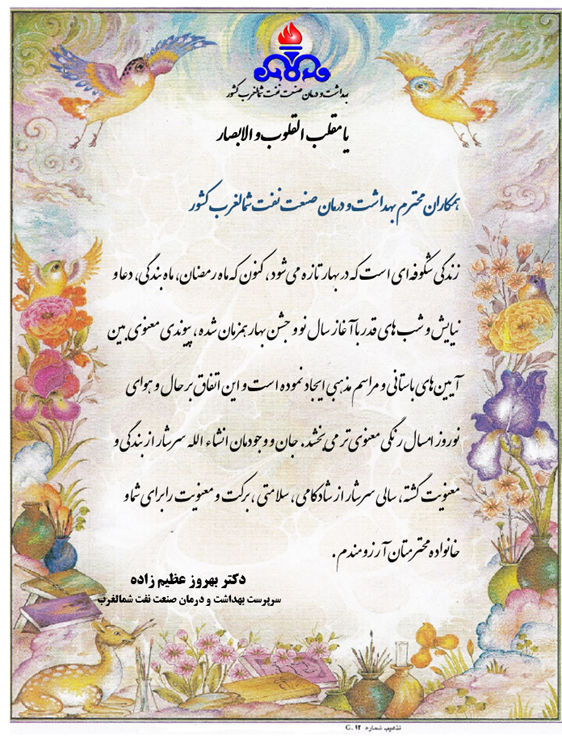 بهداشت و درمان صنعت نفت شمالغرب کشور
یا مقلب القلوب والابصار
همکاران محترم بهداشت و درمان صنعت نفت شمالغرب کشور
زندگی شکوفه ای است که در بهار تازه می شود، کنون که ماه رمضان، ماه بندگی، دعا و
نیایش و شب های قدر با آغاز سال نو و جشن بهار همزمان شده، پیوندی معنوی بین
آیین های باستانی و مراسم مذهبی ایجاد نموده است و این اتفاق بر حال و هوای
نوروز امسال رنگی معنوی تر می بخشد. جان و وجودمان انشاء الله سرشار از بندگی و
معنویت گشته، سالی سرشار از شادکامی، سلامتی، برکت و معنویت را برای شما و
خانواده محترمتان آرزومندم.
دکتر بهروز عظیم زاده
سرپرست بهداشت و درمان صنعت نفت شمالغرب
تذهیب شماره G. ۹۲